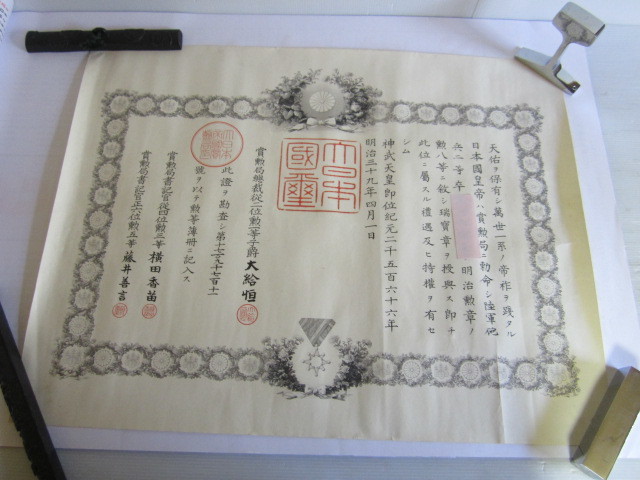 天佑ヲ保有シ萬世一系ノ帝祚ヲ踐タル
日本國皇帝ハ賞勲局ニ勅命シ陸軍砲
兵二等卒 明治勲章ノ
勲八等ニ敘シ瑞寶章ヲ授與ス即チ
此位ニ屬スル禮遇及ヒ特權ヲ有セ
シム
神武天皇即位紀元二千五百六十六年
明治三十九年四月一日
大日本
國璽
賞勲局總裁從二位勲一等子爵大給恒
此證ヲ勘査シ第十七万九千七百十一
號ヲ以テ勲等簿冊ニ記入ス
賞勲局書記官從四位勲三等横田香苗
賞勲局書記官正六位勲五等藤井善言